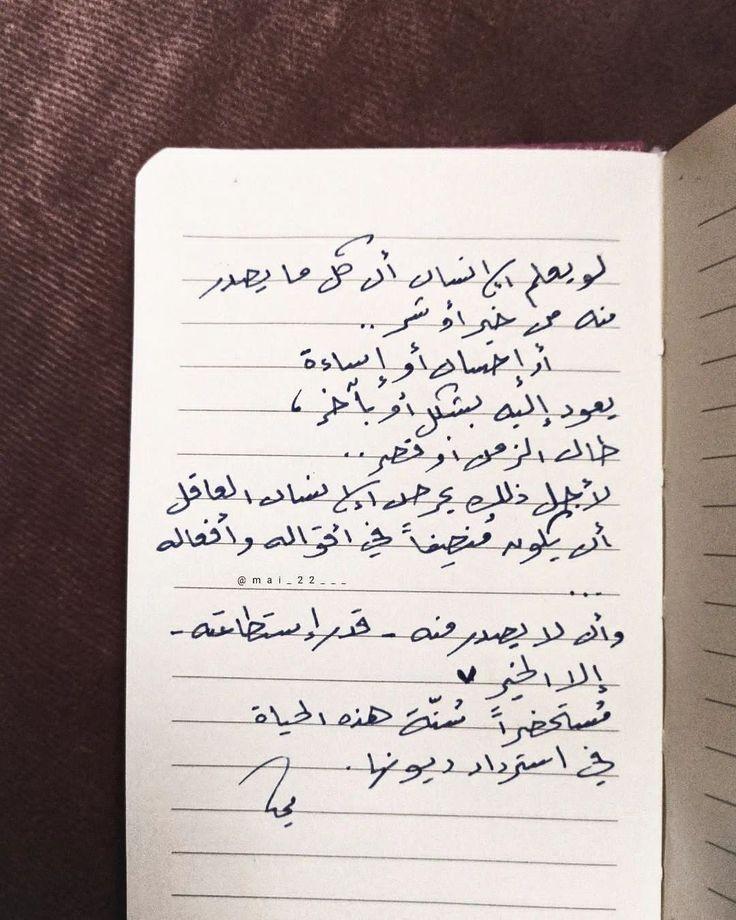 لو يعلم الإنسان أن كل ما يصدر
منه من خير أو شر ..
أو إحسان أو إساءة
يعود إليه بشكل أو بآخر ،
طال الزمن أو قصر ..
لأجل ذلك يحرص الإنسان العاقل
أن يكون مُنصِفاً في أقواله وأفعاله
@mai_22___
...
وأن لا يصدر منه - قدر إستطاعته -
إلا الخير ♥
مُستحضراً سُنّة هذه الحياة
في استرداد ديونها .
مي